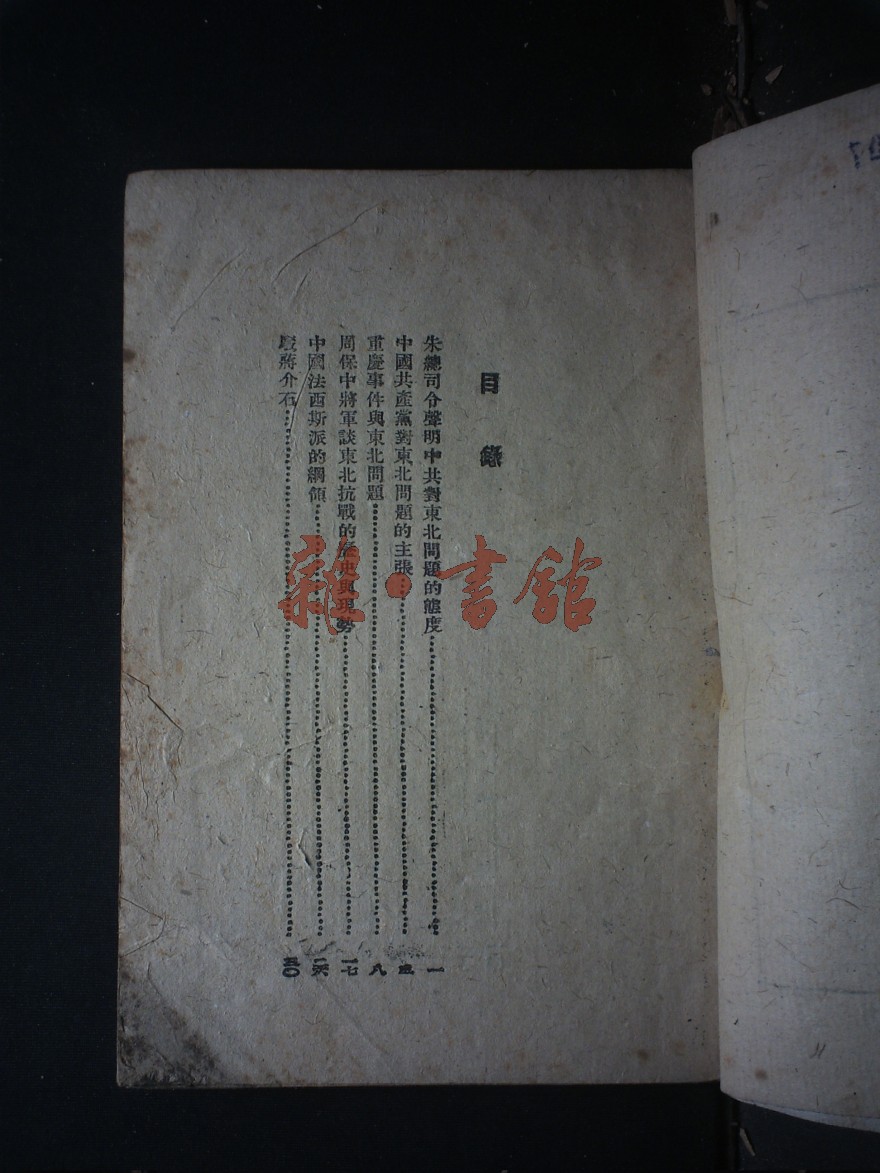 目錄
朱總司令聲明中共對東北問題的態度……一
中國共產黨對東北問題的主張……三
重慶事件與東北問題……八
周保中將軍談東北抗戰的歷史與現勢……一七
中國法西斯派的綱領……二六
蔣介石……五〇
雜·書館